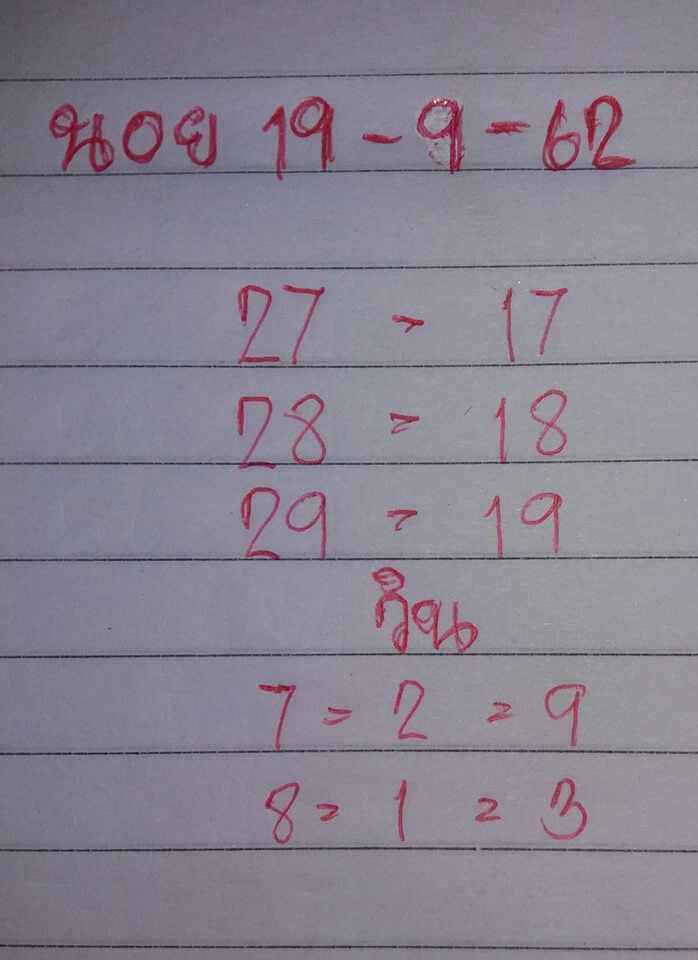 นอย 19 - 9 - 62
27 = 17
28 = 18
29 = 19
วิน
7 = 2 = 9
8 = 1 = 3